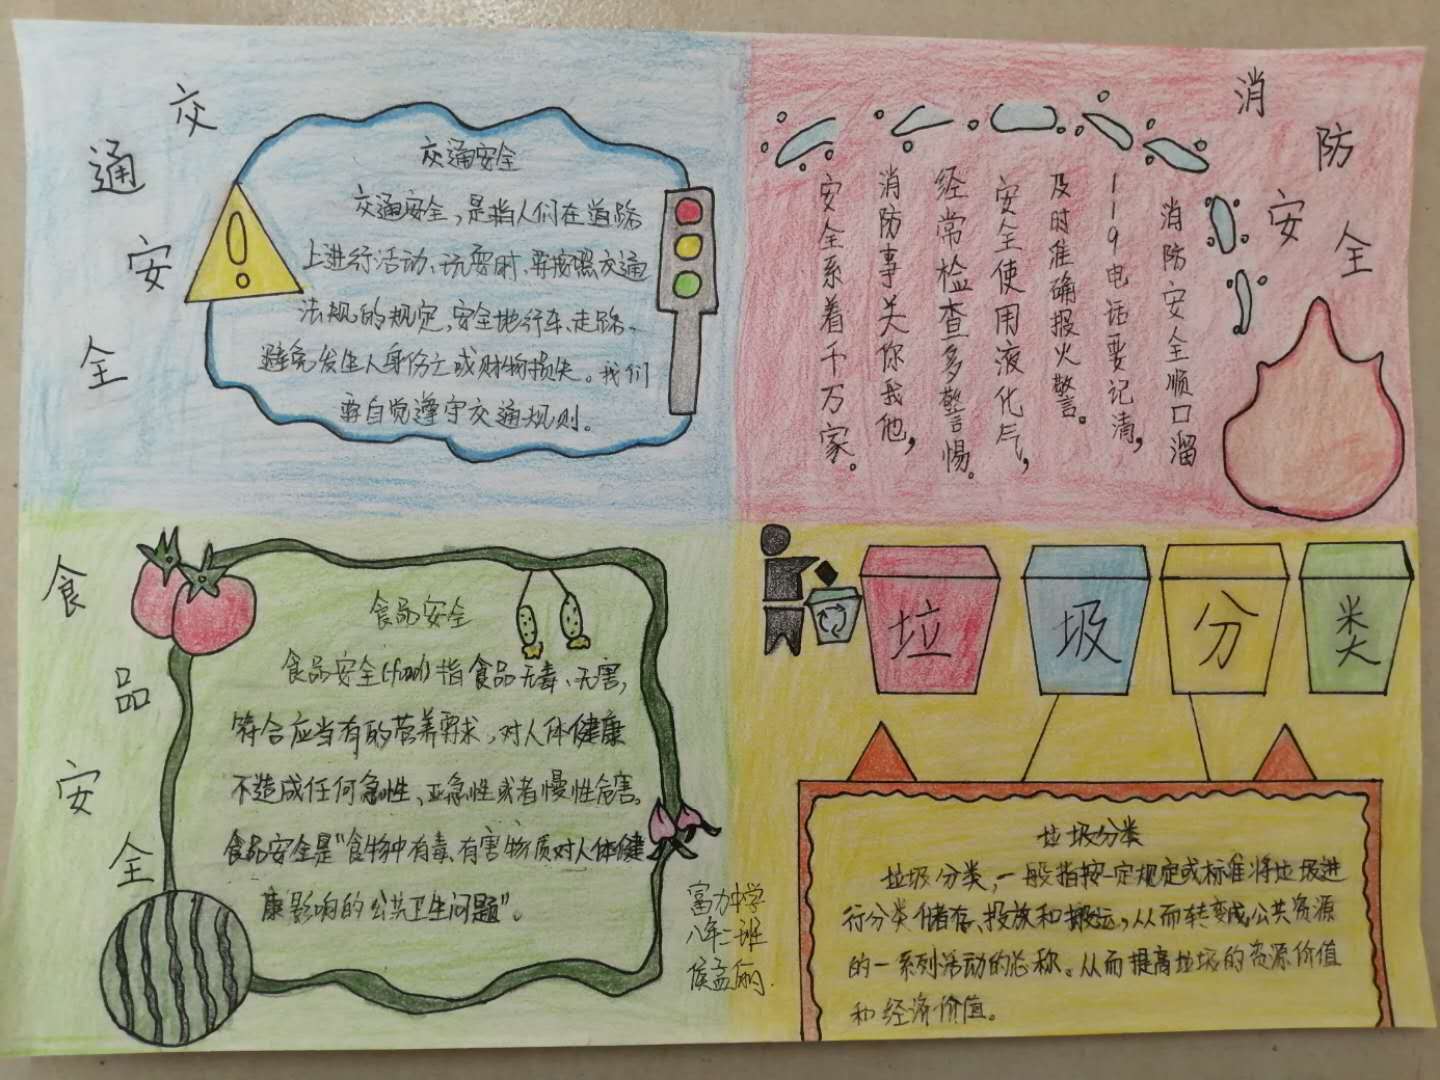 交通安全
交通安全
交通安全,是指人们在道路
上进行活动、玩耍时,要按照交通
法规的规定,安全地行车、走路,
避免发生人身伤亡或财物损失。我们
要自觉遵守交通规则。
消防安全
消防安全顺口溜
119电话要记清,
及时准确报火警。
安全使用液化气,
经常检查多警惕。
消防事关你我他,
安全系着千万家。
食品安全
食品安全
食品安全(food)指食品无毒、无害,
符合应当有的营养要求,对人体健康
不造成任何急性、亚急性或者慢性危害。
食品安全是“食物中有毒、有害物质对人体健
康影响的公共卫生问题”。
富力中学
八年二班
侯孟俪.
垃圾分类
垃圾分类
垃圾分类,一般指按一定规定或标准将垃圾进
行分类储存、投放和搬运,从而转变成公共资源
的一系列活动的总称。从而提高垃圾的资源价值
和经济价值。